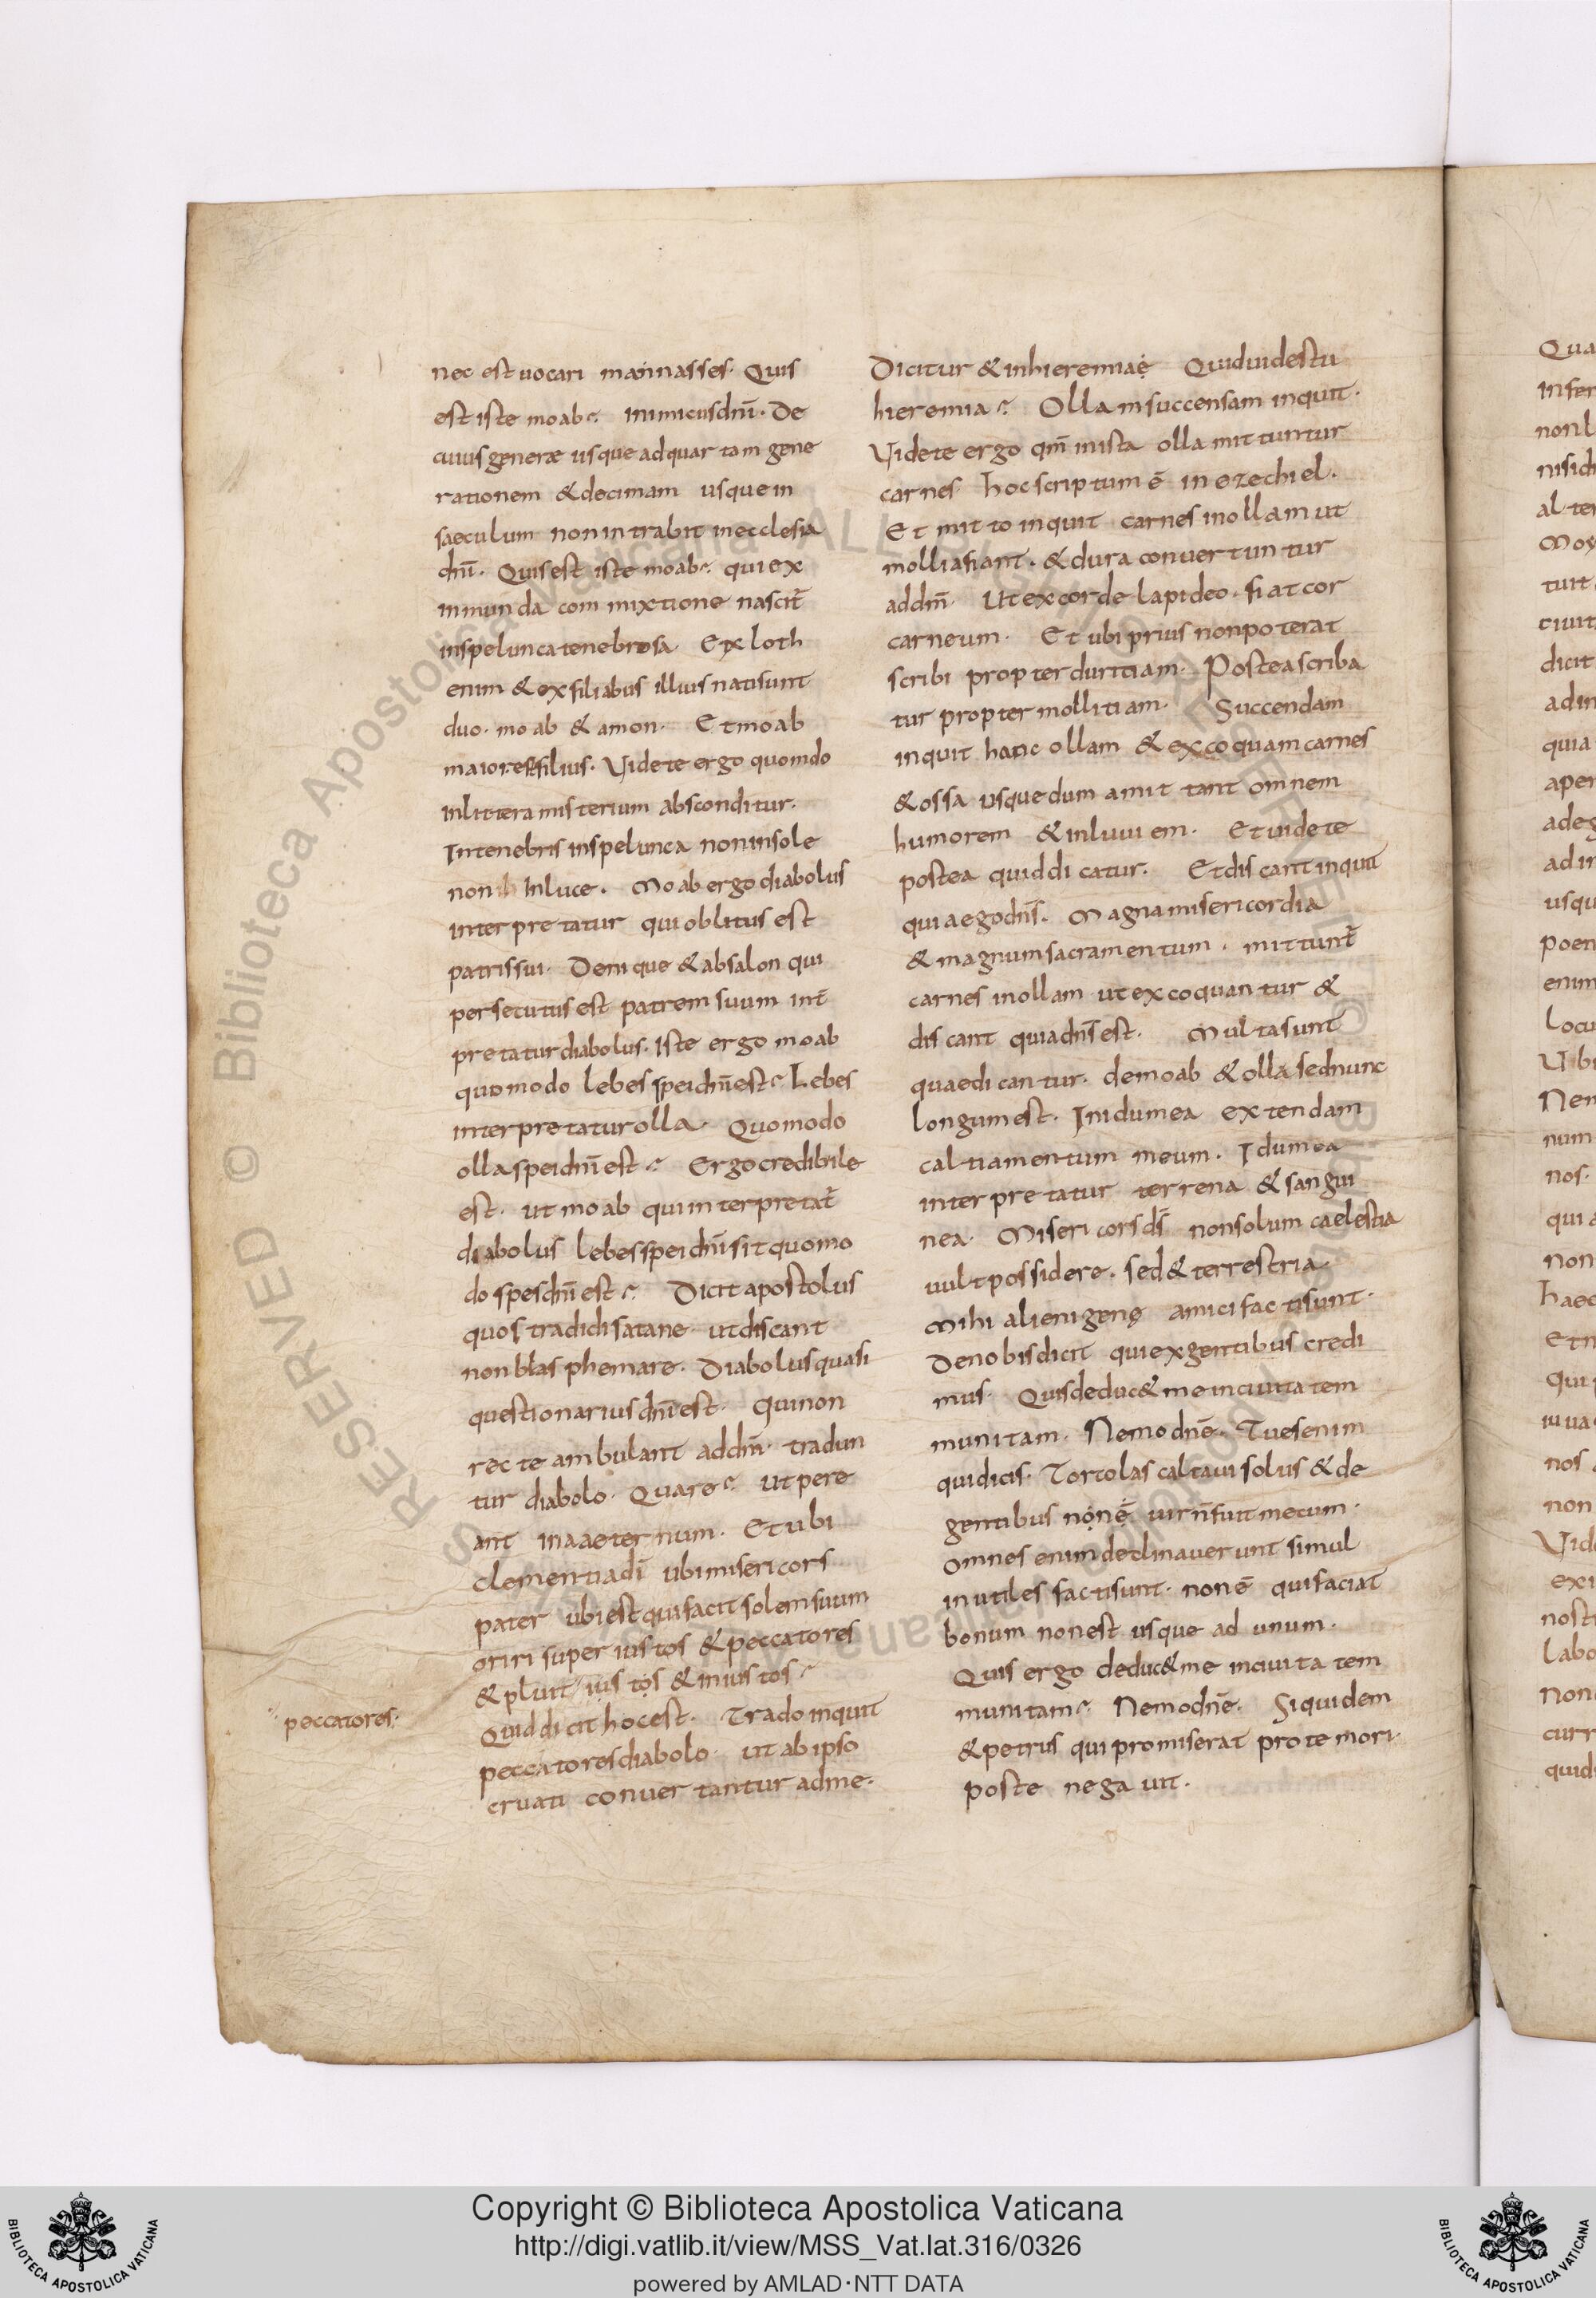 nec est uocari mannasses. Quis
est iste moab? inimicus dnī. De
cuius generæ usque ad quartam gene
rationem & decimam usque in
saeculum non intrabit in ecclesia
dnī. Quis est iste moab? qui ex
inmunda commixtione nascit̄
in spelunca tenebrosa. Ex loth
enim & ex filiabus illius nati sunt
duo. moab & amon. Et moab
maiores filius. Videte ergo quomdo
in littera misterium absconditur.
In tenebris in spelunca non in sole
non in luce. Moab ergo diabolus
interpretatur qui oblitus est
patris sui. Denique & absalon qui
persecutus est patrem suum int̄
pretatur diabolus. Iste ergo moab
quomodo lebes spei dnī est? Lebes
interpretatur olla. Quomodo
olla spei dnī est? Ergo credibile
est. ut moab qui interpretat̄
diabolus lebes spei dnī sit quomo
do spes dnī est? Dicit apostolus
quos tradidi satane ut discant
non blasphemare. Diabolus quasi
questionarius dnī est. Qui non
recte ambulant ad dnm̄. tradun
tur diabolo. Quare? Ut pere
ant in aaeternum. Et ubi
clementia dī ubi misericors
pater ubi est qui facit solem suum
oriri super iustos & peccatores
& pluit iustos & iniustos?
Quid dicit hoc est. Trado inquit
peccatores.
peccatores diabolo. ut ab ipso
cruati conuertantur ad me.
Dicitur & in hieremiae Quid uides tu
hieremia? Ollam succensam inquit.
Videte ergo qm̄ in ista olla mittuntur
carnes hoc scriptum ē in ezechiel.
Et mitto inquit carnes in ollam ut
mollia fiant. & dura conuertuntur
ad dm̄. Ut ex corde lapideo. fiat cor
carneum. Et ubi prius non poterat
scribi propter duritiam. Postea scriba
tur propter mollitiam. Succendam
inquit hanc ollam & excoquam carnes
& ossa usque dum amittant omnem
humorem & inluuiem. Et uidete
postea quid dicatur. Et discant inquit
quia ego dns̄. Magna misericordia
& magnum sacramentum. mittunt̄
carnes in ollam ut excoquantur &
discant quia dns̄ est. Multa sunt
quae dicantur. de moab & olla sed nunc
longum est. In idumea extendam
caltiamentum meum. Idumea
interpretatur terrena & sangui
nea. Misericors ds̄ non solum caelestia
uult possidere. sed & terrestria.
Mihi alienigenę amici facti sunt.
De nobis dicit qui ex gentibus credi
mus. Quis deduc& me in ciuitatem
munitam. Nemo dnē. Tu es enim
qui dicis. Torcolas caltaui solus & de
gentibus non ē uir n̄ fuit mecum.
Omnes enim declinauerunt simul
inutiles facti sunt. non ē qui faciat
bonum non est usque ad unum.
Quis ergo deduc& me in ciuitatem
munitam? Nemo dnē. Siquidem
& petrus qui promiserat pro te mori.
poste negauit.
Qua
Infer
non l
nisi di
al-ter
Moy
tuit
ciuit
dicit
ad in
quia
aper
adeg
ad in
usqu
poen
enim
Locu
Ubi
Nem
num
nos.
qui a
non
haec
Et n
Qui
iuua
nos
non
Vide
exi
nost
Labo
Non
curr
quid
RESERVED © Biblioteca Apostolica Vaticana ALL RIGHTS RESERVED
Copyright © Biblioteca Apostolica Vaticana
http://digi.vatlib.it/view/MSS_Vat.lat.316/0326
powered by AMLAD·NTT DATA
BIBLIOTECA APOSTOLICA VATICANA
BIBLIOTECA APOSTOLICA VATICANA